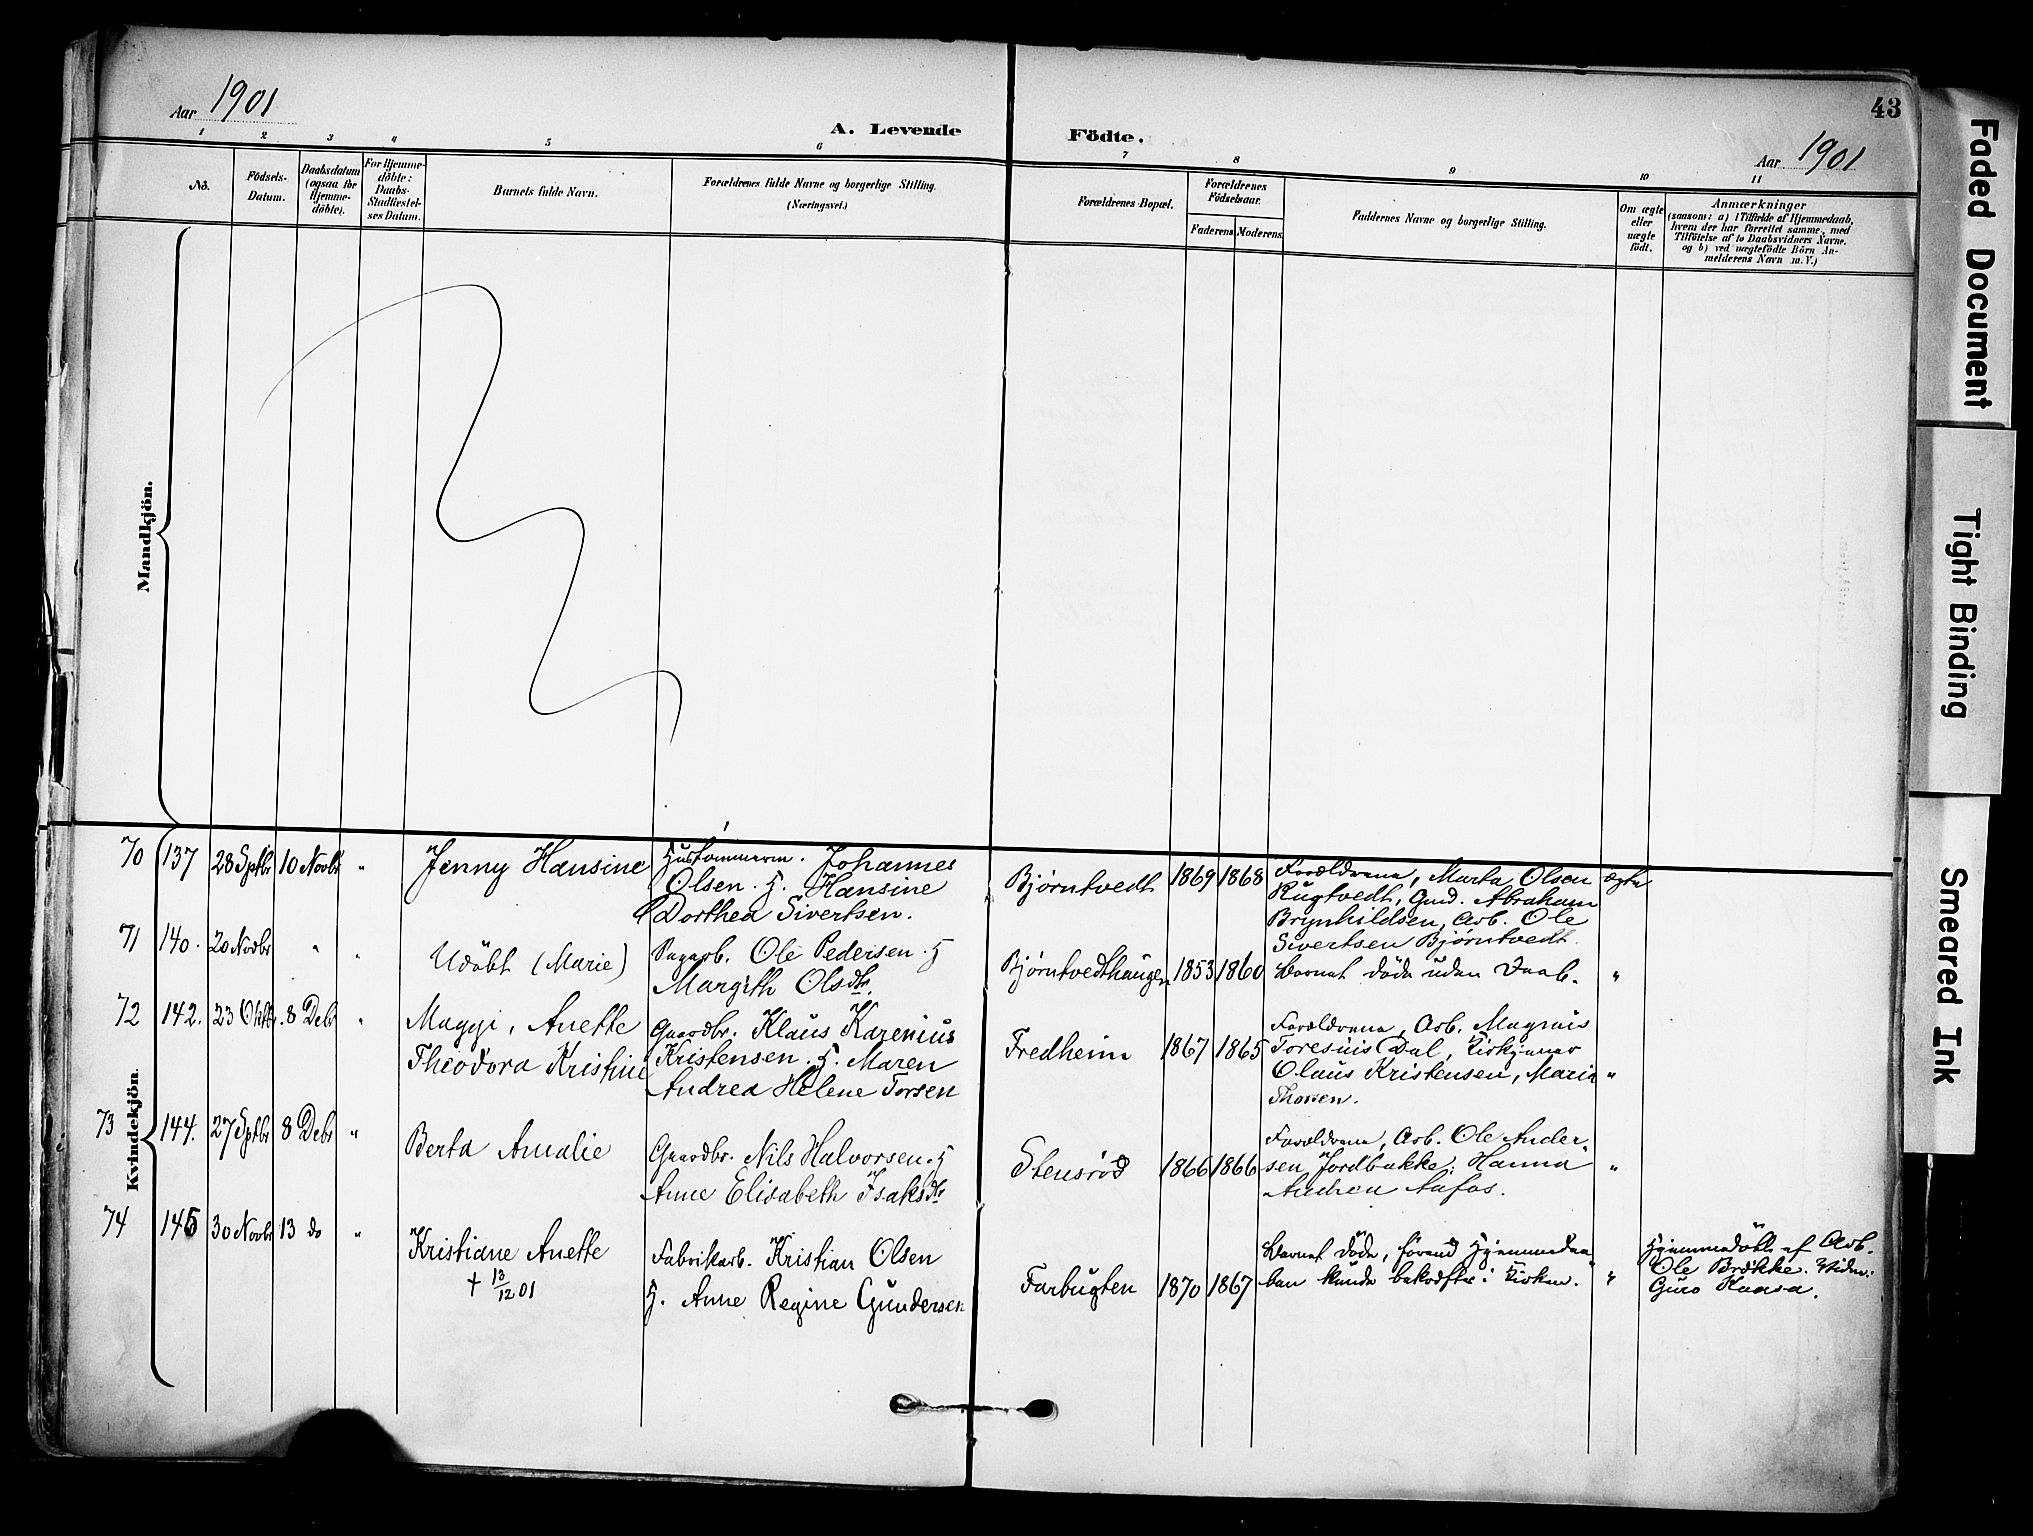 Aar 1901
A. Levende Födte.
43
Aar 1901
1 2 3 4 5 6 7 8 9 10 11
No.
Födsels-
Datum.
Daabsdatum
(ogsaa for
Hjemme-
döbte).
For Hjemme-
döbte:
Daabs-
Stadfæstel-
ses Datum.
Barnets fulde Navn.
Forældrenes fulde Navne og borgerlige Stilling.
(Næringsvei.)
Forældrenes Bopæl.
Forældrenes
Födselsaar.
Faderens Moderens
Faddernes Navne og borgerlige Stilling.
Om ægte
eller
uægte
födt.
Anmærkninger
(saasom: a) i Tilfælde af Hjemmedaab,
hvem der har forrettet samme, med
Tilföielse af to Daabsvidners Navne.
og b) ved uægtefödte Börn An-
melderens Navn m. V.)
Mandkjön.
Kvindekjön.
70 137 28 Sptbr 10 Novbr " Jenny Hansine
Hustömmerm. Johannes
Olsen. H. Hansine
Dorthea Sivertsen.
Bjørntvedt 1869 1868
Forældrene, Marta Olsen
Rugtvedt, Gmd. Abraham
Brynhildsen, Arb. Ole
Sivertsen Bjørntvedt.
ægte
71 140. 20 Novbr " " Udöbt (Marie)
Ole Pedersen. H
Margith Olsdtr.
Bjørntvedthaugen 1853 1860 Barnet döde uden Daab. "
72 142. 23 Oktbr. 8 Debr " Maggi, Anette
Theodora Kristine
Gaardbr. Klaus Karenius
Kristensen. H. Maren
Andrea Helene Torsen
Fredheim 1867 1865
Forældrene, Arb. Magnus
Toresius Dal, Kirkjener
Olaus Kristensen, Maria
Thorsen.
"
73 144. 27 Sptbr 8 Debr " Berta Amalie
Gaardbr. Nils Halvorsen. H
Anne Elisabeth Isaksdtr
Stensrød 1866 1866
Forældrene, Arb. Ole Ander
sen Jordbakke; Hanna
Andrea Aafos.
"
74 145 30 Novbr 13 do " Kristiane Anette
† 13/12 01
Fabrikarb. Kristian Olsen
H. Anne Regine Gundersen
Farbugten 1870 1867
Barnet döde, förend Hjemmedaa
ben kunde bekræftes i Kirken. "
Hjemmedöbt af Arb.
Ole Brække. Vidne:
Guro Kaasa.
Faded Document
Tight Binding
Smeared Ink